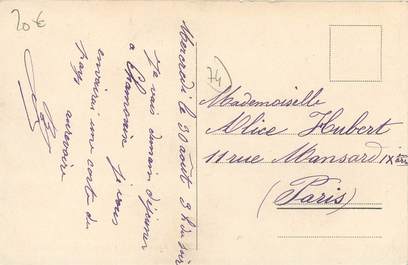 20€
74
Mercredi le 30 août 3h du soir
Je vais demain déjeuner
à Chamonix je vous
enverrai une carte du
pays aurevoire
Mademoiselle
Alice Hubert
11 rue Mansard IXème
(Paris)